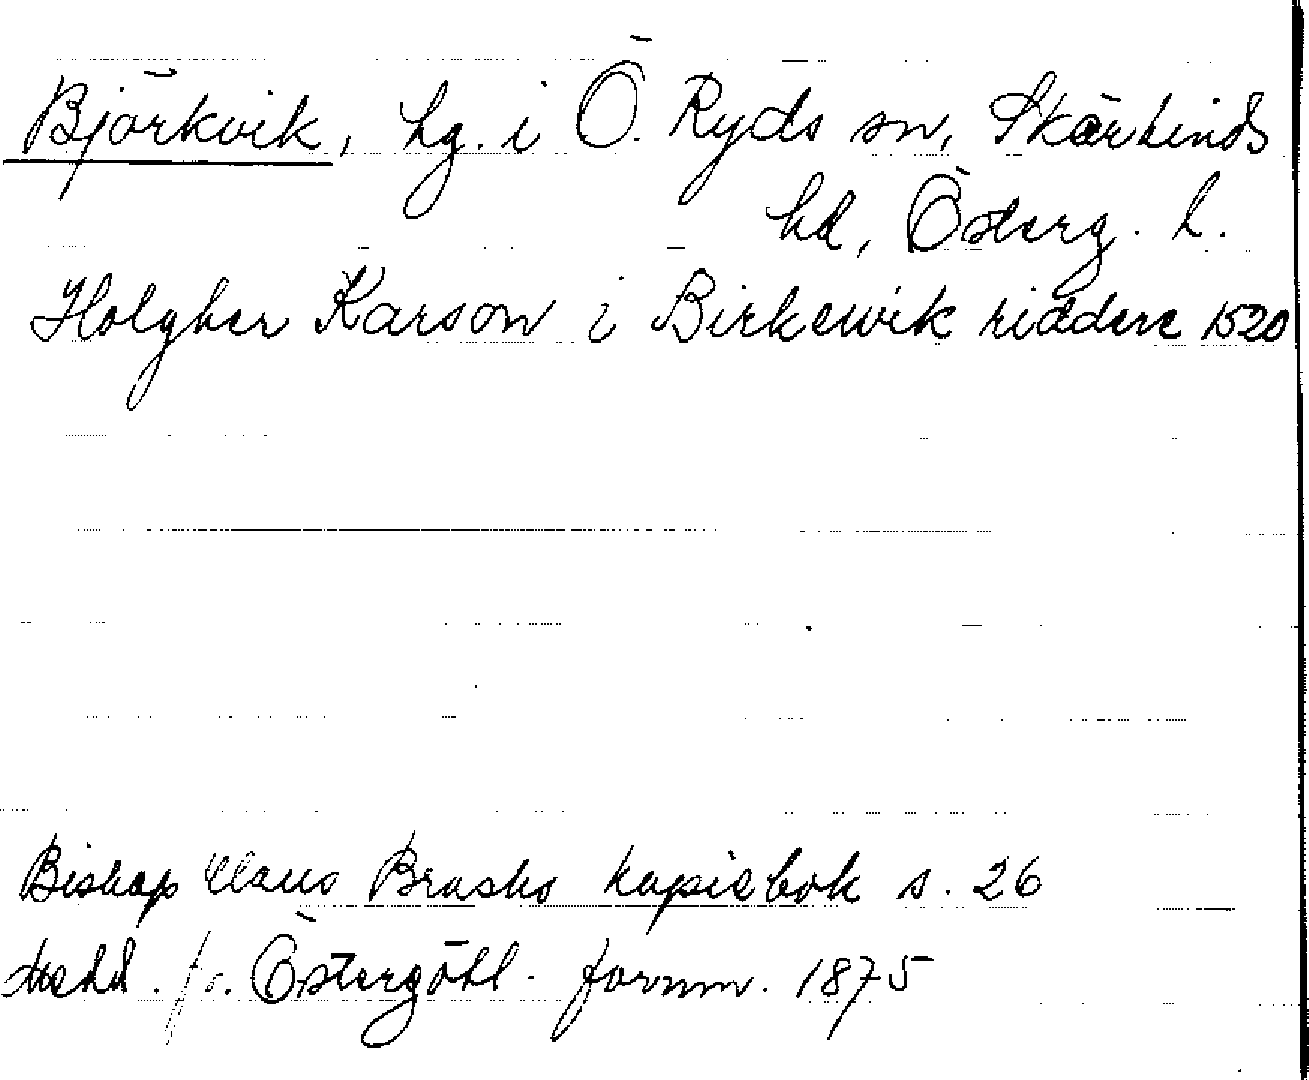 Björkvik, hg. i Ö. Ryds sn, Skärkinds
hd, Österg. l.
Holgher Karson i Birkewik riddere 1520
Biskop Claus Brasks kopiebok s. 26
Medd. fr. Östergötl. fornm. 1875